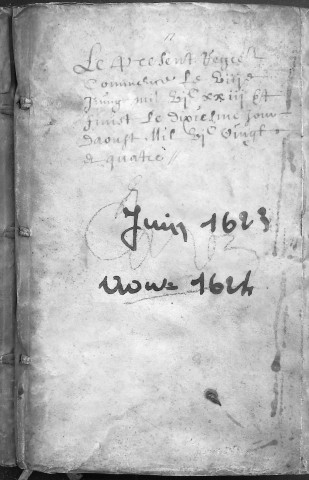 Le present Regre
Commence le viije
Juing mil vjc xxiij et
finist le dixiesme jour
daoust Mil vjc vingt
et quatre
Juin 1623
Aout 1624